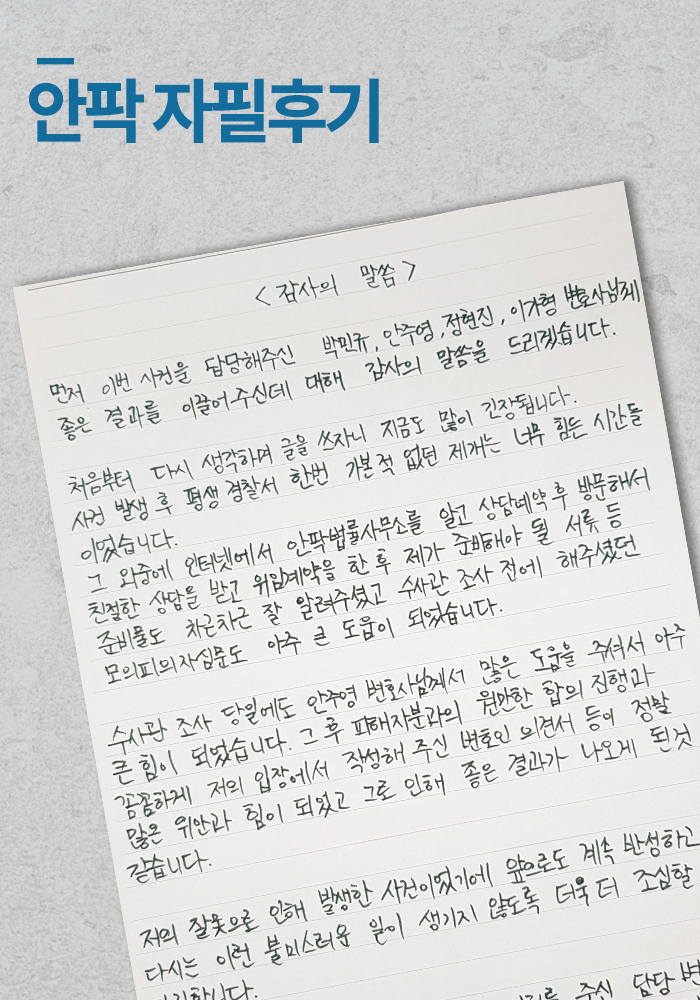 안팍 자필후기
<감사의 말씀>
먼저 이번 사건을 담당해주신 박민규, 안주영, 정현진, 이가형 변호사님께
좋은 결과를 이끌어주신데 대해 감사의 말씀을 드리겠습니다.
처음부터 다시 생각하며 글을 쓰자니 지금도 많이 긴장됩니다.
사건 발생 후 평생 경찰서 한번 가본적 없던 제게는 너무 힘든 시간들
이었습니다.
그 와중에 인터넷에서 안팍법률사무소를 알고 상담예약 후 방문해서
친절한 상담을 받고 위임계약을 한 후 제가 준비해야 될 서류 등
준비물도 차근차근 잘 알려주셨고 수사관 조사 전에 해주셨던
모의피의자심문도 아주 큰 도움이 되었습니다.
수사관 조사 당일에도 안주영 변호사님께서 많은 도움을 주셔서 아주
큰 힘이 되었습니다. 그 후 피해자분과의 원만한 합의 진행과
꼼꼼하게 저의 입장에서 작성해 주신 변호인 의견서 등이 정말
많은 위안과 힘이 되었고 그로 인해 좋은 결과가 나오게 된것
같습니다.
저의 잘못으로 인해 발생한 사건이었기에 앞으로도 계속 반성하고
다시는 이런 불미스러운 일이 생기지 않도록 더욱 더 조심할
주신 담당 변